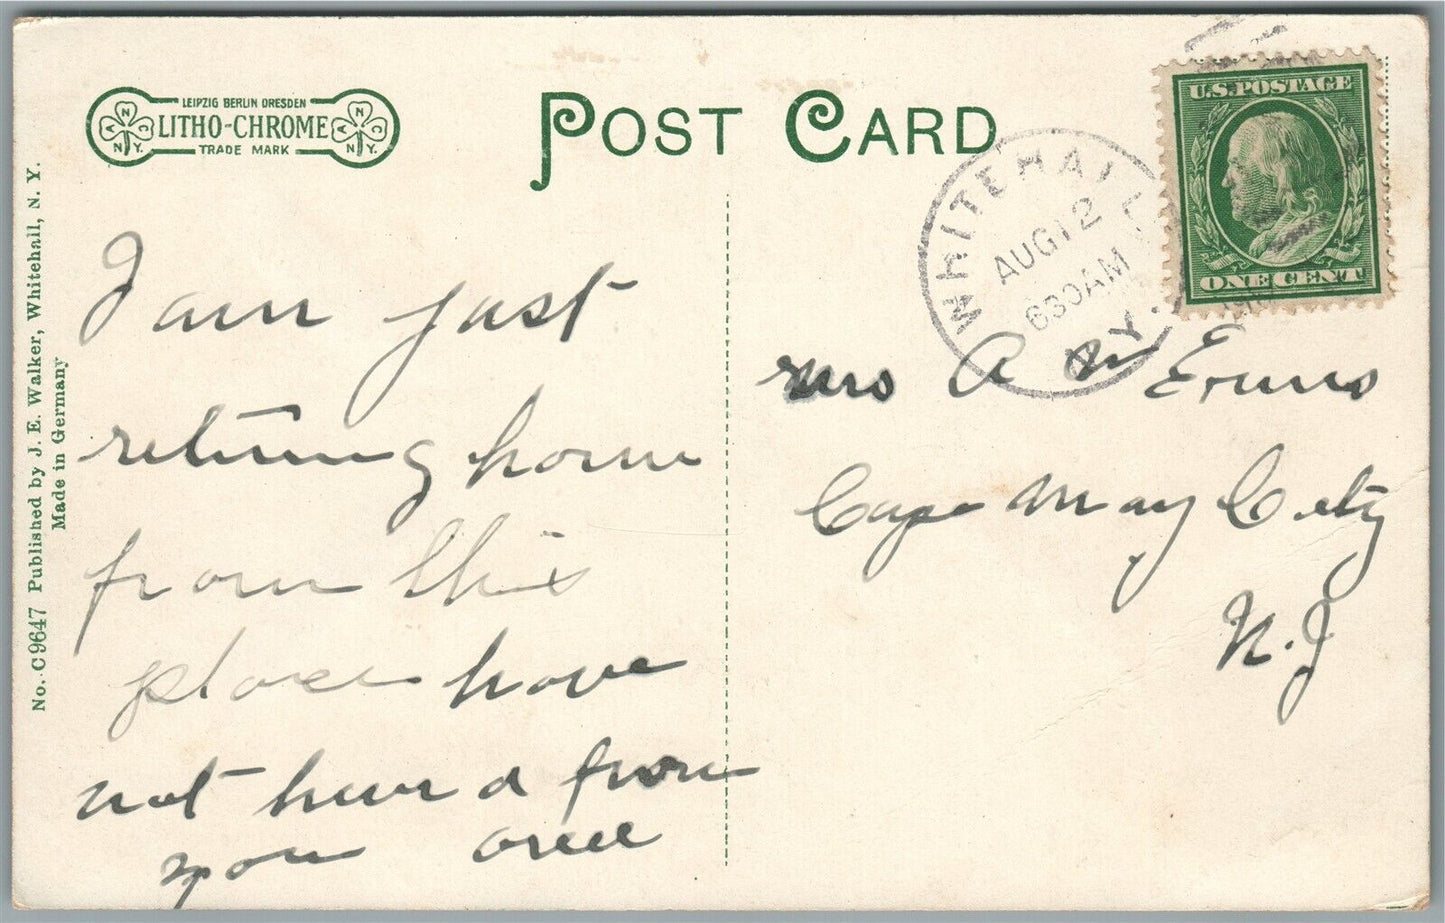 LEIPZIG BERLIN DRESDEN
LITHO-CHROME
TRADE MARK
A N C N.Y.
A N C N.Y.
POST CARD
U.S. POSTAGE
ONE CENT
WHITEHALL
AUG 12
630AM
N.Y.
No. C9647 Published by J. E. Walker, Whitehall, N. Y.
Made in Germany
I am just
returning home
from this
place have
not heard from
you
Mrs A W Evans
Cape May City
N.J